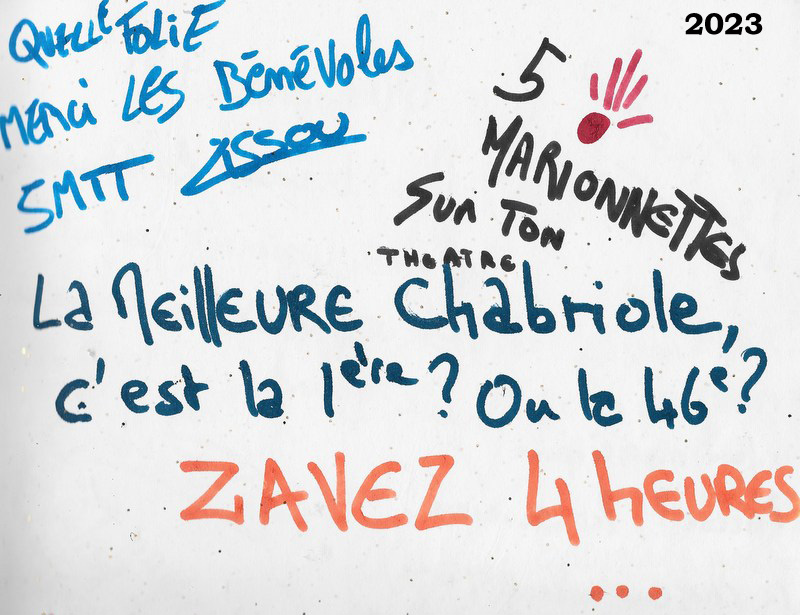 2023
QUELLE FOLIE
MERCI LES BÉNÉVOLES
SMTT ZISSOU
5
MARIONNETTES
SUR TON
THEATRE
La MEILLEURE Chabriole,
c'est la 1ère ? Ou la 46e ?
ZAVEZ 4 hEURES
...